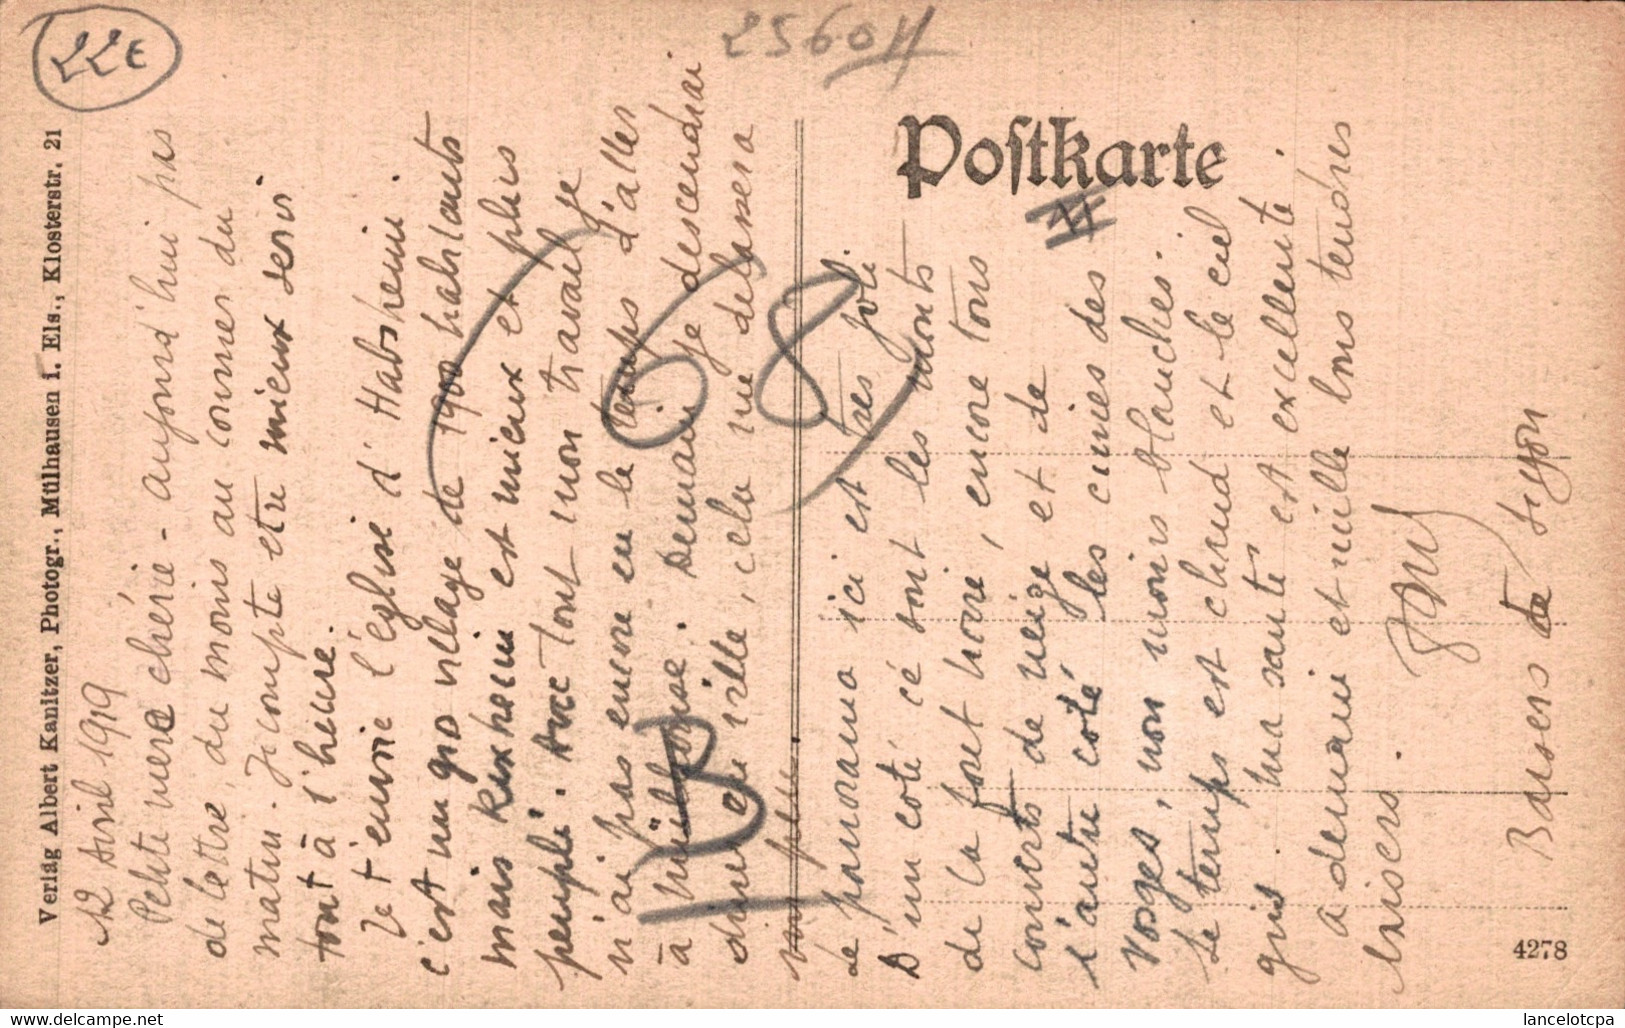 22€
25604
Postkarte
Verlag Albert Kanitzer, Photogr., Mülhausen i. Els., Klosterstr. 21
12 Avril 1919
Petite mère chérie - aujourd'hui pas
de lettre, du moins au courrier du
matin. Je compte être mieux servi
tout à l'heure.
Je t'envoie l'église d'Habsheim
c'est un gros village de 1900 habitants
mais Rixheim est mieux et plus
peuplé. Avec tout mon travail je
n'ai pas encore eu le temps d'aller
à Mulhouse. Demain je descendrai
dîner en ville, cela me délassera
un peu.
Le panorama ici est très joli.
D'un coté ce sont les monts
de la forêt noire, encore tous
couverts de neige et de
l'autre coté les cimes des
Vosges, non moins blanches.
Le temps est chaud et le ciel
gris. Ma santé est excellente.
a demain et mille bons tendres
baisers.
Baisers de Lyon
68
4278
delcampe.net
lancelotcpa